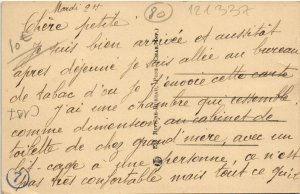 Mardi 24
80
121337
Chère petite.
10€
Je suis bien arrivée et aussitôt
apres dejeuné je suis allée au bureau
de tabac d'ou je t'envoie cette carte
J'ai une chambre qui ressemble
comme dimension au cabinet de
toilette de chez grand'mere, avec un
personne, ce n'est
pas très confortable mais tout ce qu'il